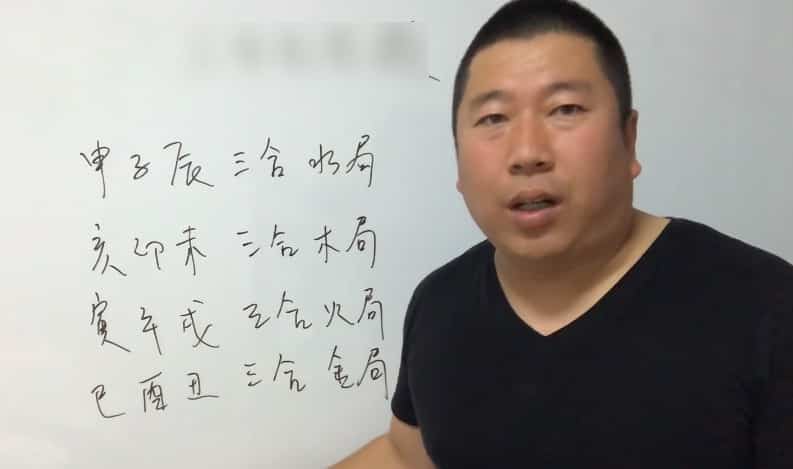 申子辰三合水局
亥卯未三合木局
寅午戌三合火局
巳酉丑三合金局